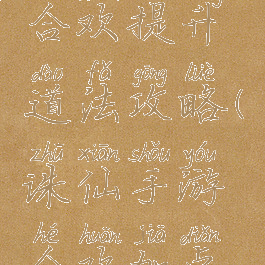 合欢提升
dào fǎ gōng lüè
道法攻略(
zhū xiān shǒu yóu
诛仙手游
hé huān jiā diǎn
合欢加点